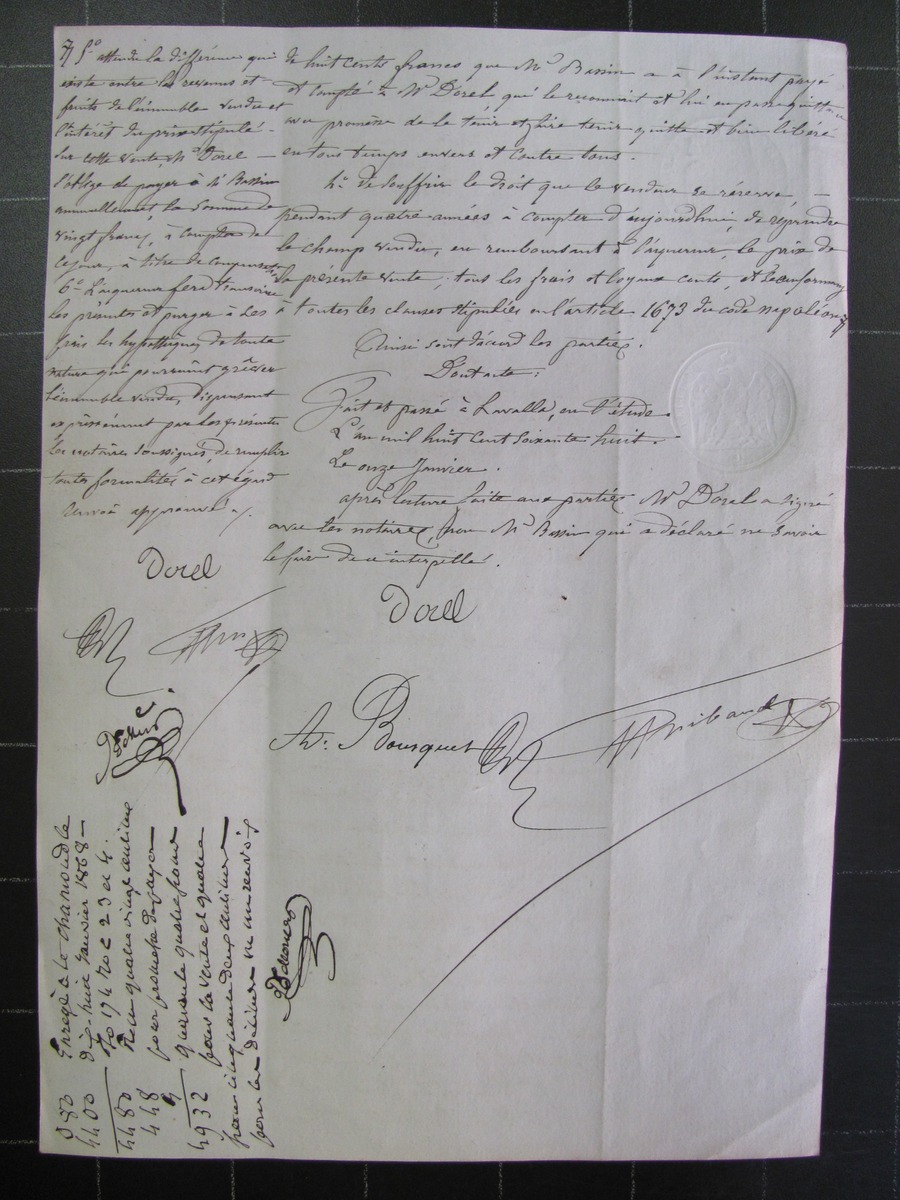 de huit cents francs que Mr Bassin a à l'instant payé
et compté à Mr Dorel qui le reconnait et lui en passe quittance
avec promesse de le tenir et faire tenir quitte et bien libéré
en tous temps envers et contre tous.
4o de souffrir le droit que le vendeur se réserve,
pendant quatre années à compter d'aujourdhui, de reprendre
le champ vendu, en remboursant à l'aquereur, le prix de
la présente vente; tous les frais et loyaux couts, et se conformant
à toutes les clauses stipulées en l'article 1673 du code napoléon
Ainsi sont d'accord les parties.
Dont acte:
Fait et passé à Lavalla, en l'étude.
L'an mil huit cent soixante huit.
Le onze Janvier.
après lecture faite aux parties Mr Dorel a signé
avec les notaires, non Mr Bassin qui a déclaré ne savoir
le faire de ce interpellé.
Dorel
Bousquet
5o attendu la différence qui
existe entre les revenus et
fruits de l'immeuble vendu et
l'intérêt du prix stipulé
sur cette vente, Mr Dorel
s'oblige de payer à Mr Bassin
annuellement la somme de
vingt francs, à compter de
ce jour, à titre de compensation
6o L'aquereur fera transcrire
les présentes et purger à ses
frais les hypothèques de toute
nature qui pourraient grêver
l'immeuble vendu, dispensant
expressément par les présentes
les notaires soussignés, de remplir
toutes formalités à cet égard
Renvoi approuvé
Dorel
Enregé à St Chamond le
dix-huit Janvier 1868
fo 194 Ro c 2 3 et 4.
Reçu quatre vingt centimes
pour promesse de payer
quarante quatre francs
pour la vente et quatre
francs cinquante deux centimes
pour les décimes un renvoi
0 80
44 00
44 80
4 48
4
49 32